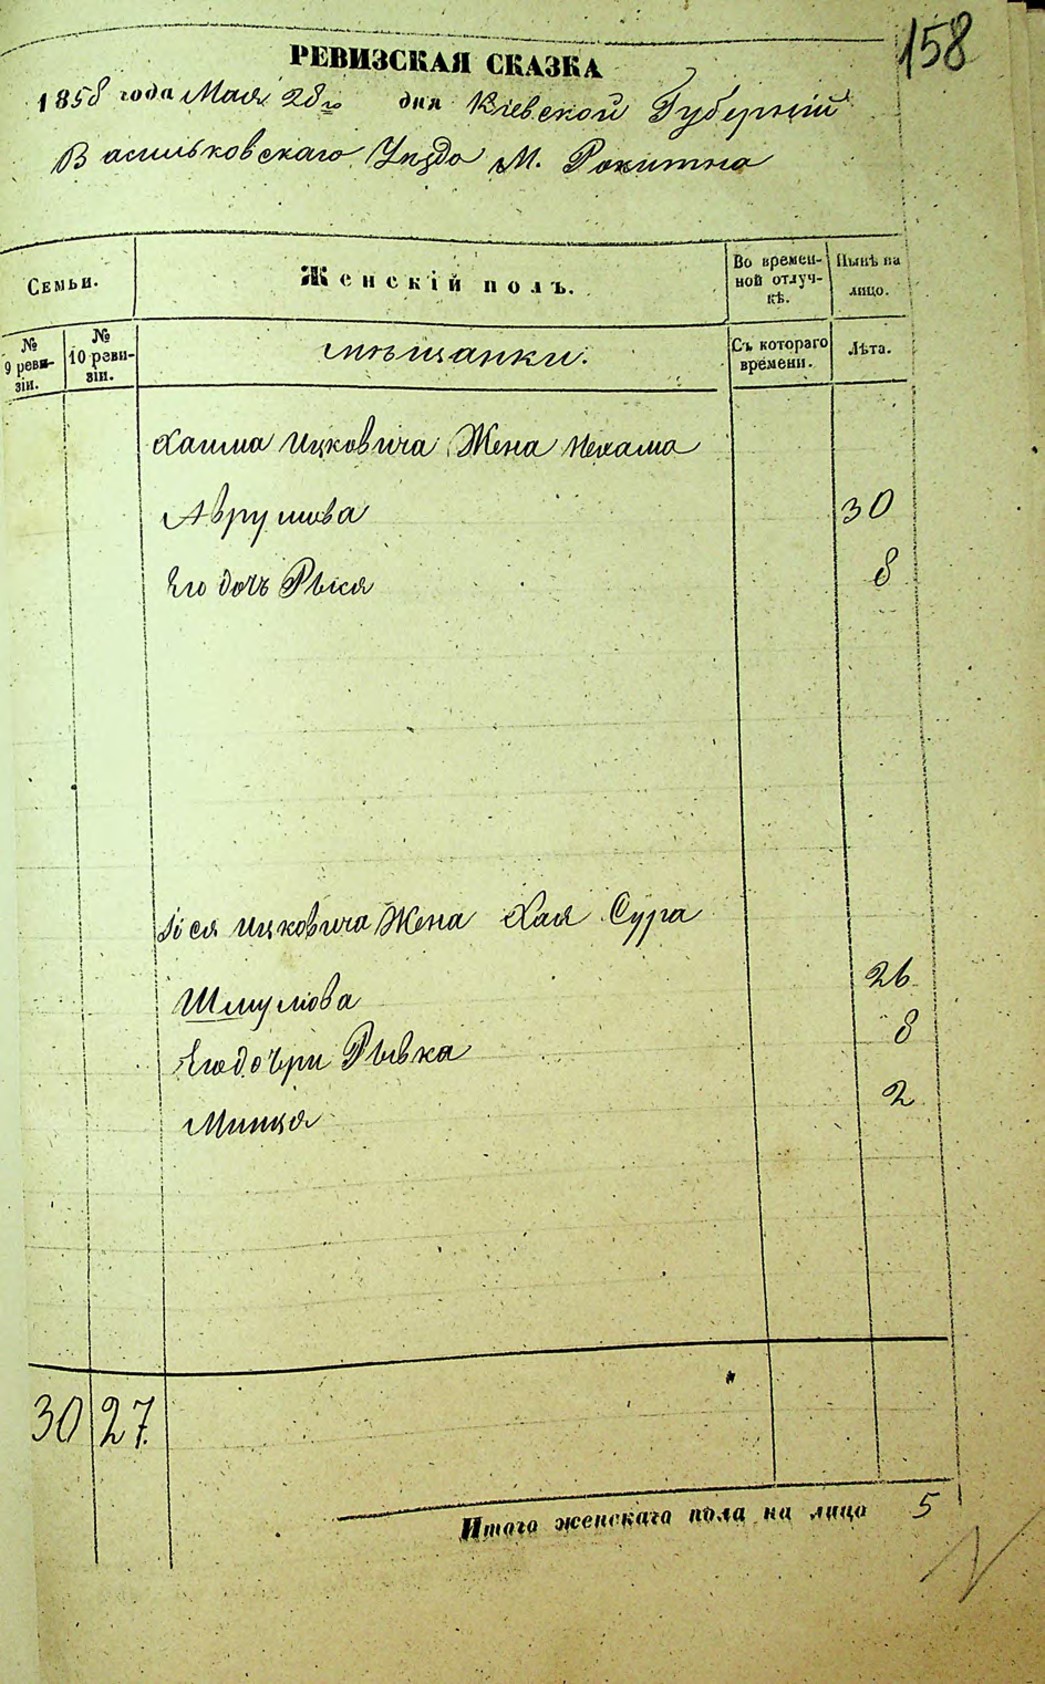 158
РЕВИЗСКАЯ СКАЗКА
1858 года Мая 28го дня Кіевской Губерніи
Васильковскаго Уѣзда М. Рокитна
Семьи.
Женскій полъ.
Во времен-
ной отлуч-
кѣ.
Нынѣ на
лицо.
№
9 реви-
зіи.
№
10 реви-
зіи.
мѣщанки.
Съ котораго
времени.
Лѣта.
Хаима Ицковича Жена Нехама
Аврумова 30
Его дочь Рыся 8
Іося Ицковича Жена Хая Сура
Шмулова 26
Его дочери Рывка 8
Минця 2
30 27
Итого женскаго пола на лицо 5